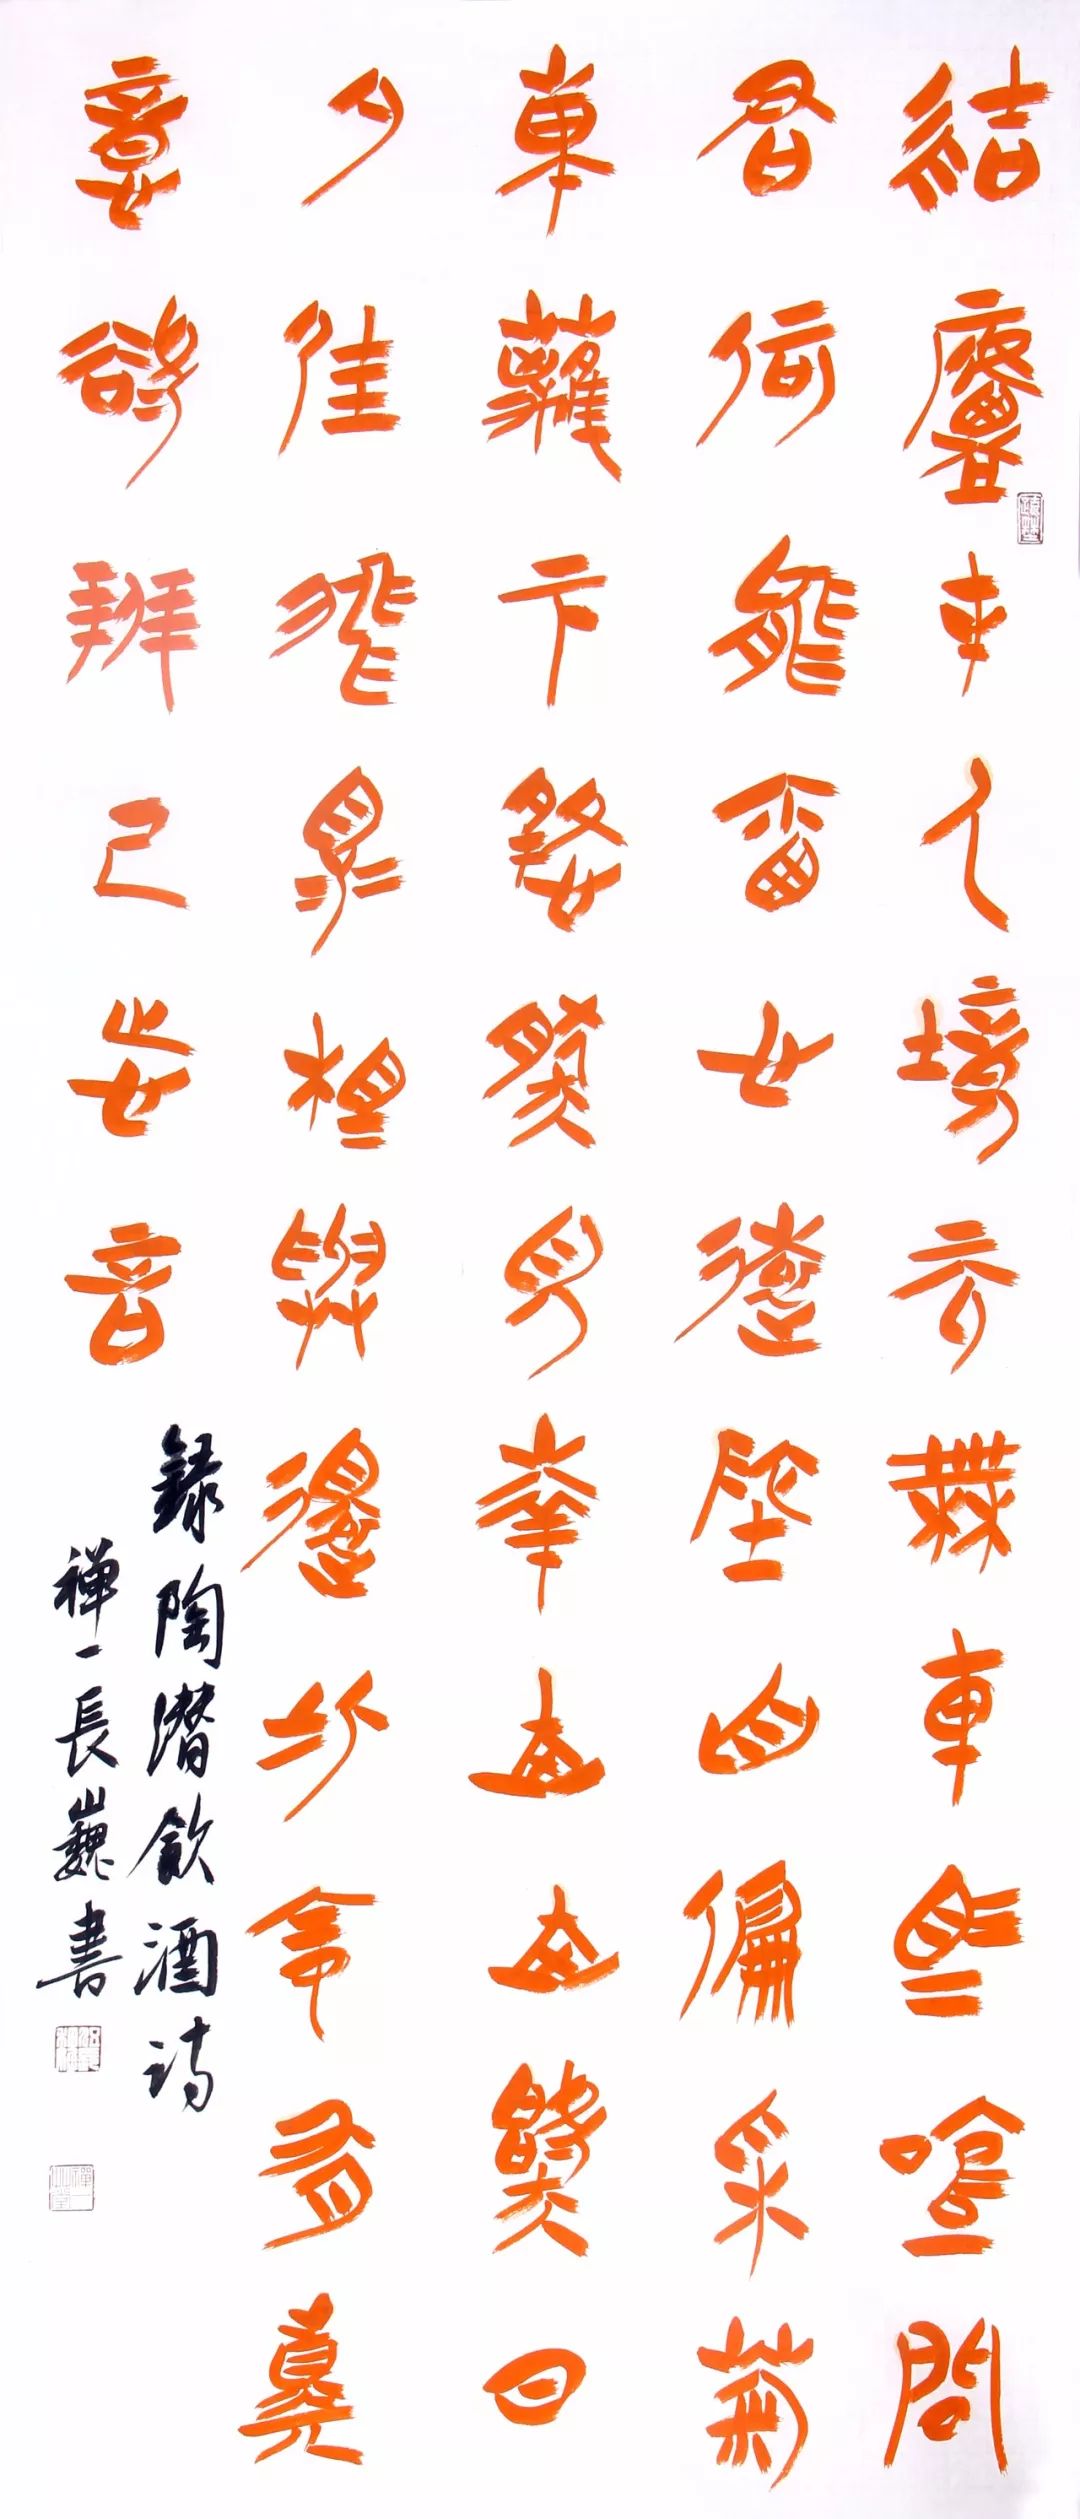 結廬在人境而無車馬喧問
君何能爾心遠地自偏采菊
東籬下悠然見南山山氣日
夕佳飛鳥相與還此中有真
意欲辨已忘言
錄陶潛飲酒詩
禪一長巍書